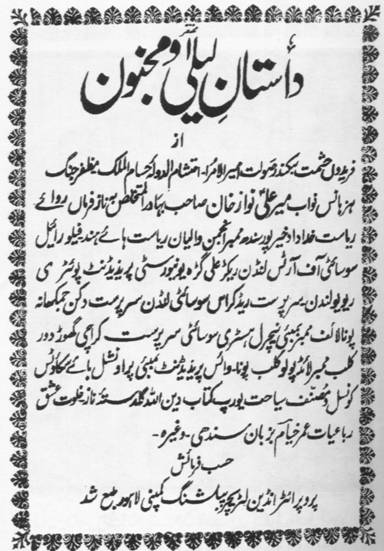 داستانِ لیلیٰ و مجنون
از
فریدوں حشمت سکندر صولت امیر الامرا۔ احتشام الدولہ حسام الملک مظفر جنگ
ہزہائنس نواب میر علی نواز خان صاحب بہادر المتخلص بہ ناز فرماں روائے
ریاست خداداد خیرپور سندھ ممبر انجمن والیان ریاست ہائے ہند فیلو رائل
سوسائٹی آف آرٹس لنڈن ریکٹر علی گڑھ یونیورسٹی پریذیڈنٹ پوئٹری
ریویو لندن۔ سرپرست ریڈ کراس سوسائٹی لنڈن سرپرست دکن جمخانہ
پونا لائف ممبر بمبئی نیچرل ہسٹری سوسائٹی سرپرست کراچی گھوڑ دور
کلب ممبر لانڈ پولو کلب پونا۔ وائس پریذیڈنٹ بمبئی پراونشل بائے سکاؤٹس
کونسل مصنف سیاحت یورپ کتاب دین اللہ گلدستۂ ناز خلوت عشق
رباعیات عمر خیام بزبان سندھی۔ وغیرہ۔
حسب فرمائش
پروپرائٹر انڈین لٹریچر پبلشنگ کمپنی لاہور طبع شد